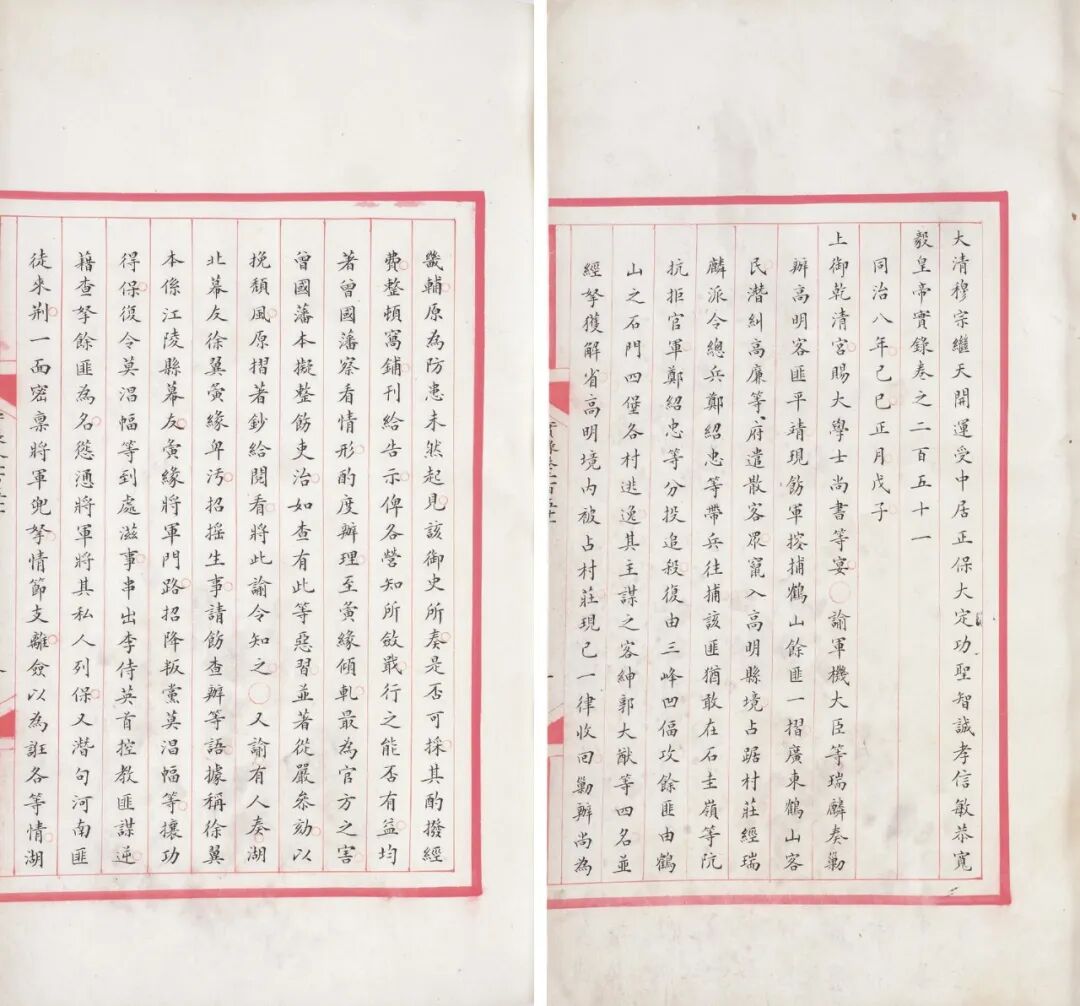 大清穆宗繼天開運受中居正保大定功聖智誠孝信敏恭寬
毅皇帝實錄卷之二百五十一
同治八年己巳正月戊子
上御乾清宮賜大學士尚書等宴○諭軍機大臣等瑞麟奏勦
辦高明客匪平靖現飭軍按捕鶴山餘匪一摺廣東鶴山客
民潛糾高廉等府遣散客眾竄入高明縣境占踞村莊經瑞
麟派令總兵鄭紹忠等帶兵往捕該匪猶敢在石圭嶺等阬
抗拒官軍鄭紹忠等分投追殺復由三峰凹偪攻餘匪由鶴
山之石門四堡各村逃逸其主謀之客紳郭大猷等四名並
經拏獲解省高明境內被占村莊現已一律收回勦辦尚為
畿輔原為防患未然起見該御史所奏是否可採其酌撥經
費整頓窩鋪刊給告示俾各營知所斂戢行之能否有益均
著曾國藩察看情形酌度辦理至夤緣傾軋最為官方之害
曾國藩本擬整飭吏治如查有此等惡習並著從嚴參劾以
挽頹風原摺著鈔給閱看將此諭令知之○又諭有人奏湖
北幕友徐翼夤緣卑污招搖生事請飭查辦等語據稱徐翼
本係江陵縣幕友夤緣將軍門路招降叛黨莫淐幅等攘功
得保復令莫淐幅等到處滋事串出李侍英首控教匪謀逆
藉查拏餘匪為名慫慂將軍將其私人列保又潛句河南匪
徒來荆一面密稟將軍兜拏情節支離僉以為誑各等情湖